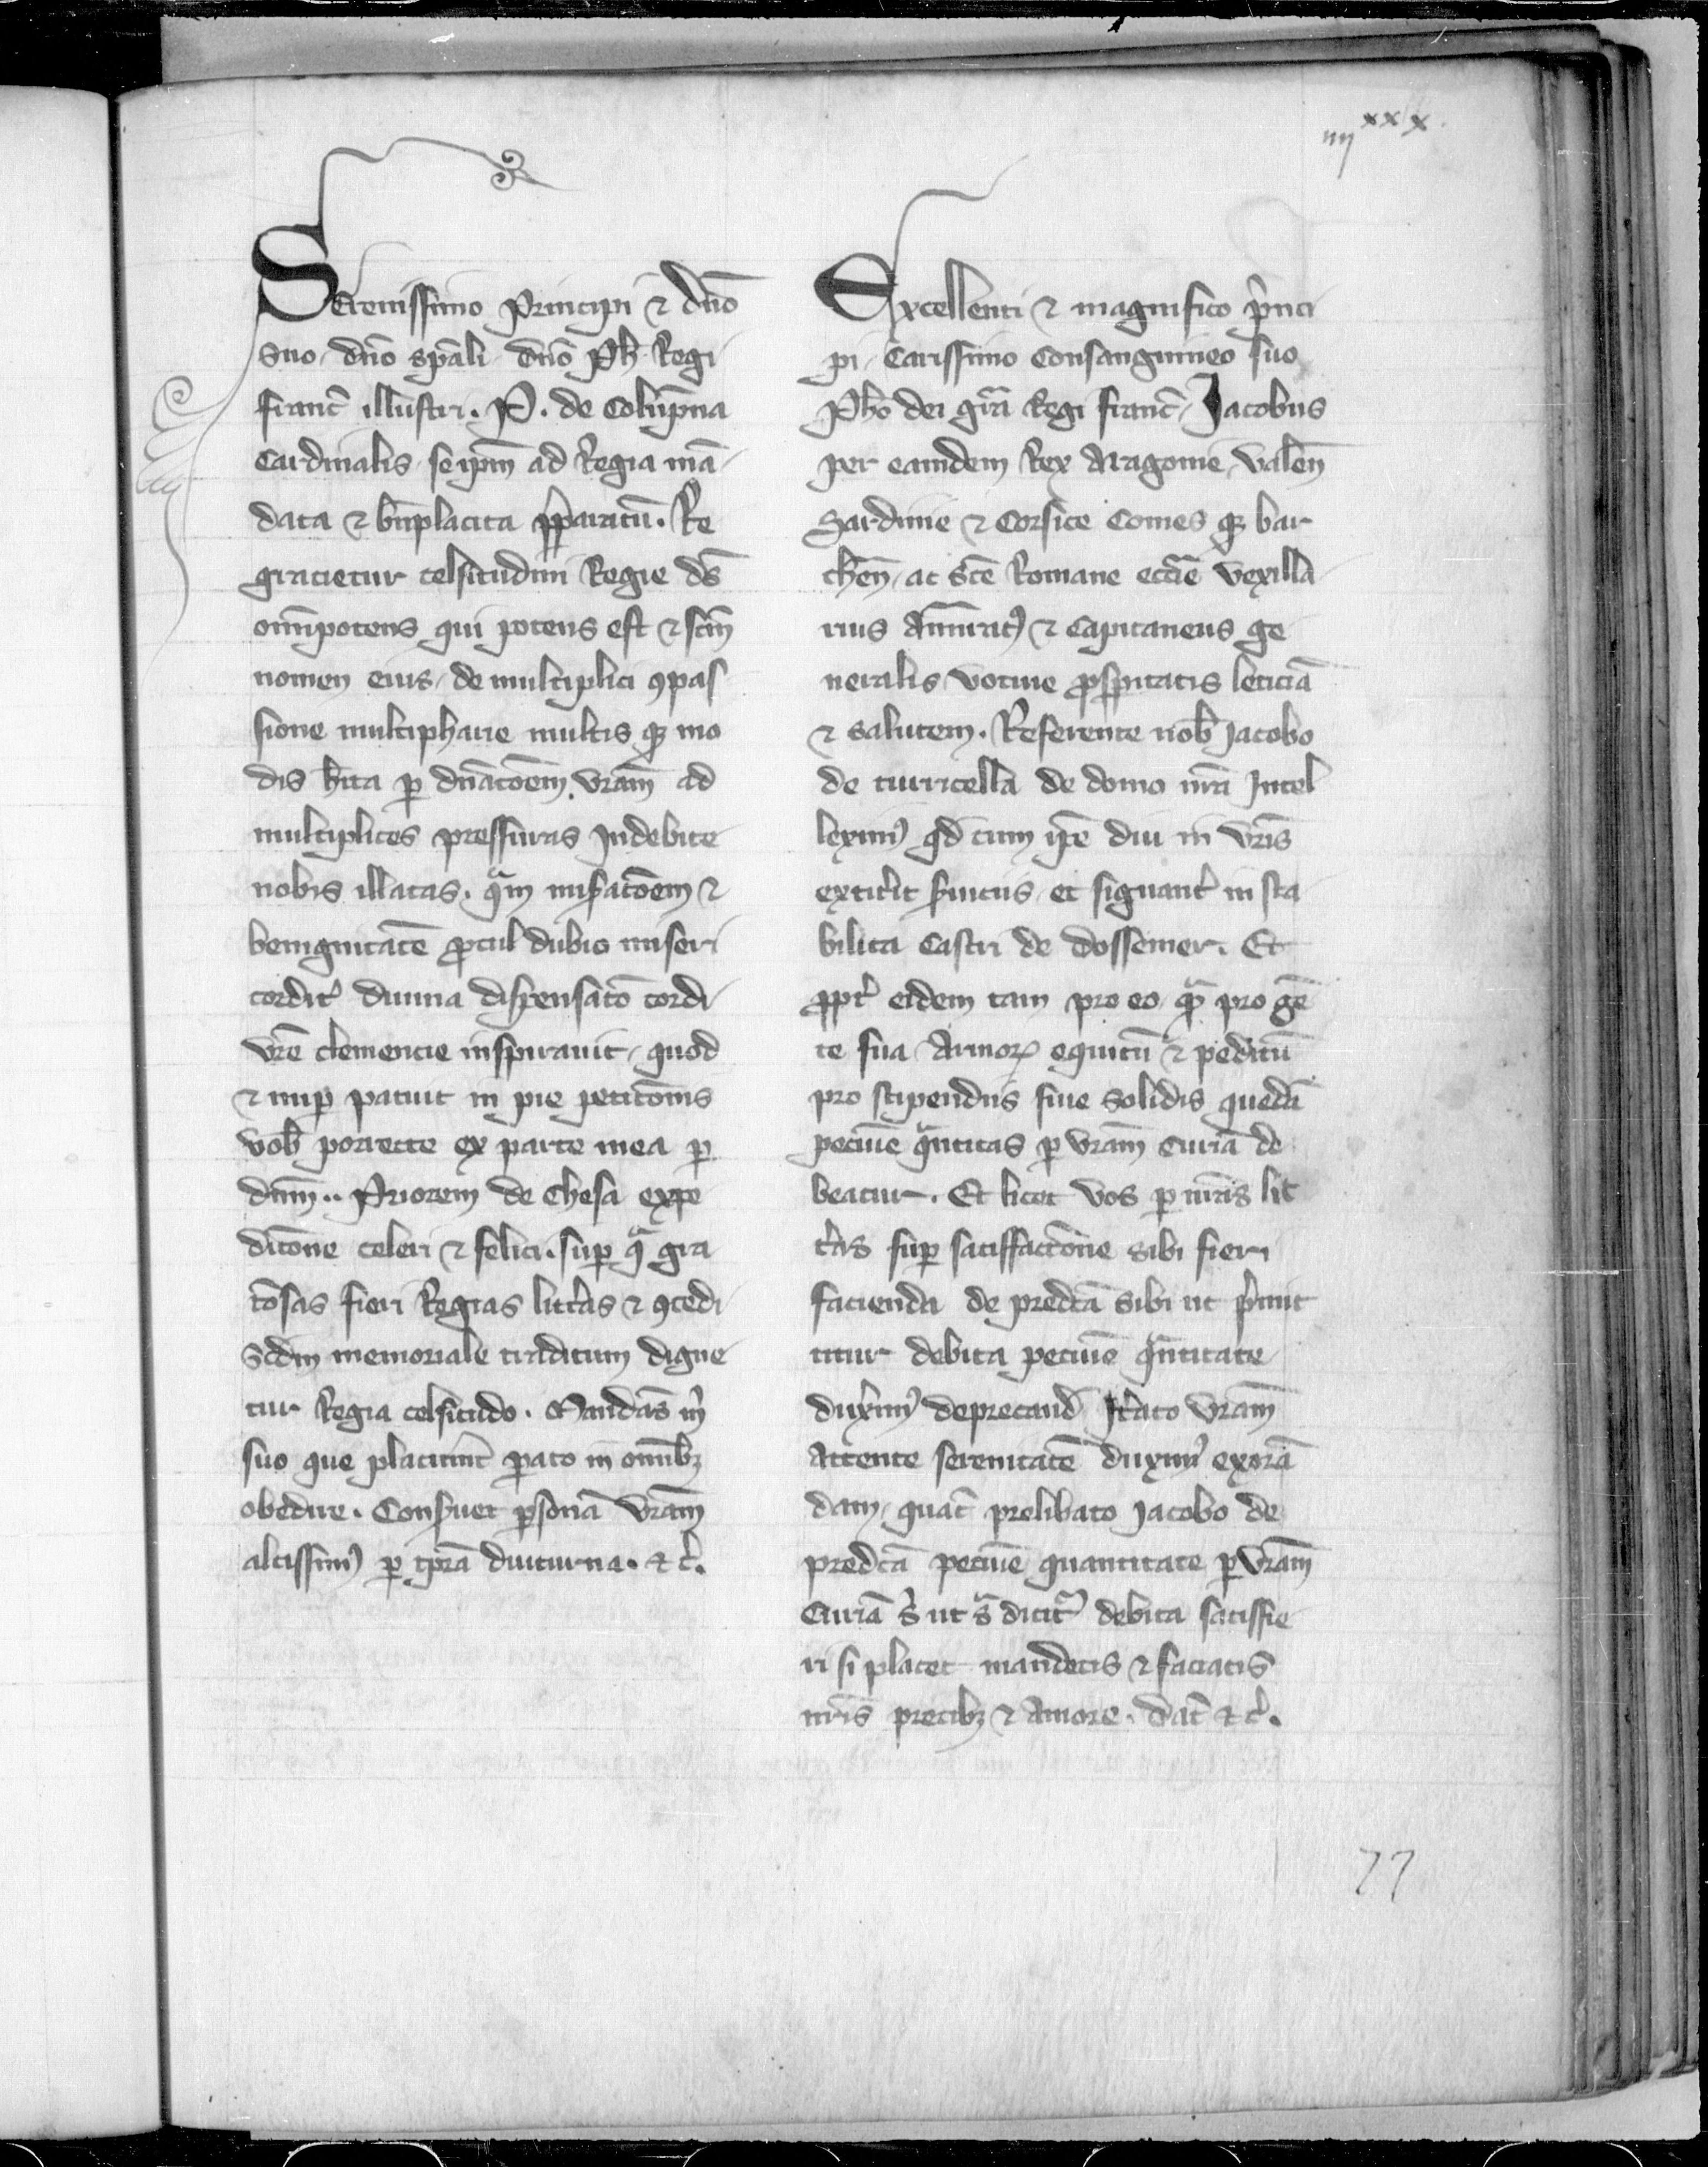 iiij xx x.
Serenissimo Principi ⁊ dn̄o
suo. dn̄o sp̄ali dn̄o Ph̄ Regi
franc̄ illustri. P. de Colūpna
Cardinalis seip̄m ad Regia mā
data ⁊ bn̄placita p̄paratū. Re
gracietur celsitudini Regie ds̄
om̄ipotens qui potens est ⁊ sc̄m
nomen eius, de multiplici ꝯpas
sione multipharie multis qꝫ mo
dis h̄ita ꝑ dn̄acōem vr̄am ad
multiplices pressuras Indebite
nobis illatas. qͣm mis̄acōem ⁊
benignitatē ꝓcul dubio miseri
cordit̉ diuina dispensatō cordi
vr̄e clemencie inspirauit, quod
⁊ nuꝑ patuit in pie peticōnis
vob̄ porrecte ex parte mea ꝑ
dn̄m.. Priorem de Chesa expe
dicōne celeri ⁊ felici. suꝑ qͣ gra
cōsas fieri Regias litt̉as ⁊ ꝯcedi
Scdm̄ memoriale traditum digne
tur Regia celsitudo. Mandās m̉
suo que placuerint ꝑato in om̄ibꝫ
obedire. Conseruet ꝑsonā vr̄am
altissimꝰ ꝑ tp̄ra diuturna. ⁊ c̉.
Excellenti ⁊ magnifico p̉nci
pi, Carissimo Consanguineo suo
Ph̄o dei gr̄a Regi franc̄, Jacobus
per eamdem Rex Aragonie, valen̄
Sardinie ⁊ Corsice Comes qꝫ bar
chen̄, ac sc̄e Romane ecc̄ie vexilla
rius Am̄iratꝰ ⁊ Capitaneus ge
neralis votiue ꝓsꝑitatis leticiā
⁊ salutem. Referente nob̄ Jacobo
de turricella de domo nr̄a Intel
leximꝰ qd̄ cum ip̄e diu in vr̄is
extit̉it s̉uiciis, et signant̉ in sta
bilita Castri de dossemer. Et
ꝓpt̉ eidem tam pro eo, qͣ̄ pro gē
te sua Armoꝝ equitū ⁊ peditū
pro stipendiis siue solidis quedā
pecuīe qͣntitas ꝑ vr̄am Curiā de
beatur. Et licet vos ꝑ nr̄as lit
t̉as suꝑ satisfactōne sibi fieri
facienda de predc̄a sibi ut p̉mit
titur debita pecuīe qͣntitate
dux̉imꝰ deprecand̄ It̉ato vr̄am
Attente serenitatē duximꝰ exorā
dam, quat̄ prelibato Jacobo de
predc̄a pecuīe quantitate ꝑ vr̄am
Curiā s̉ ut sͣ dicit̉ debita satisfie
ri si placet mandetis ⁊ faciatis
nr̄is precibꝫ ⁊ Amore. dat̄ ⁊ c̉.
77